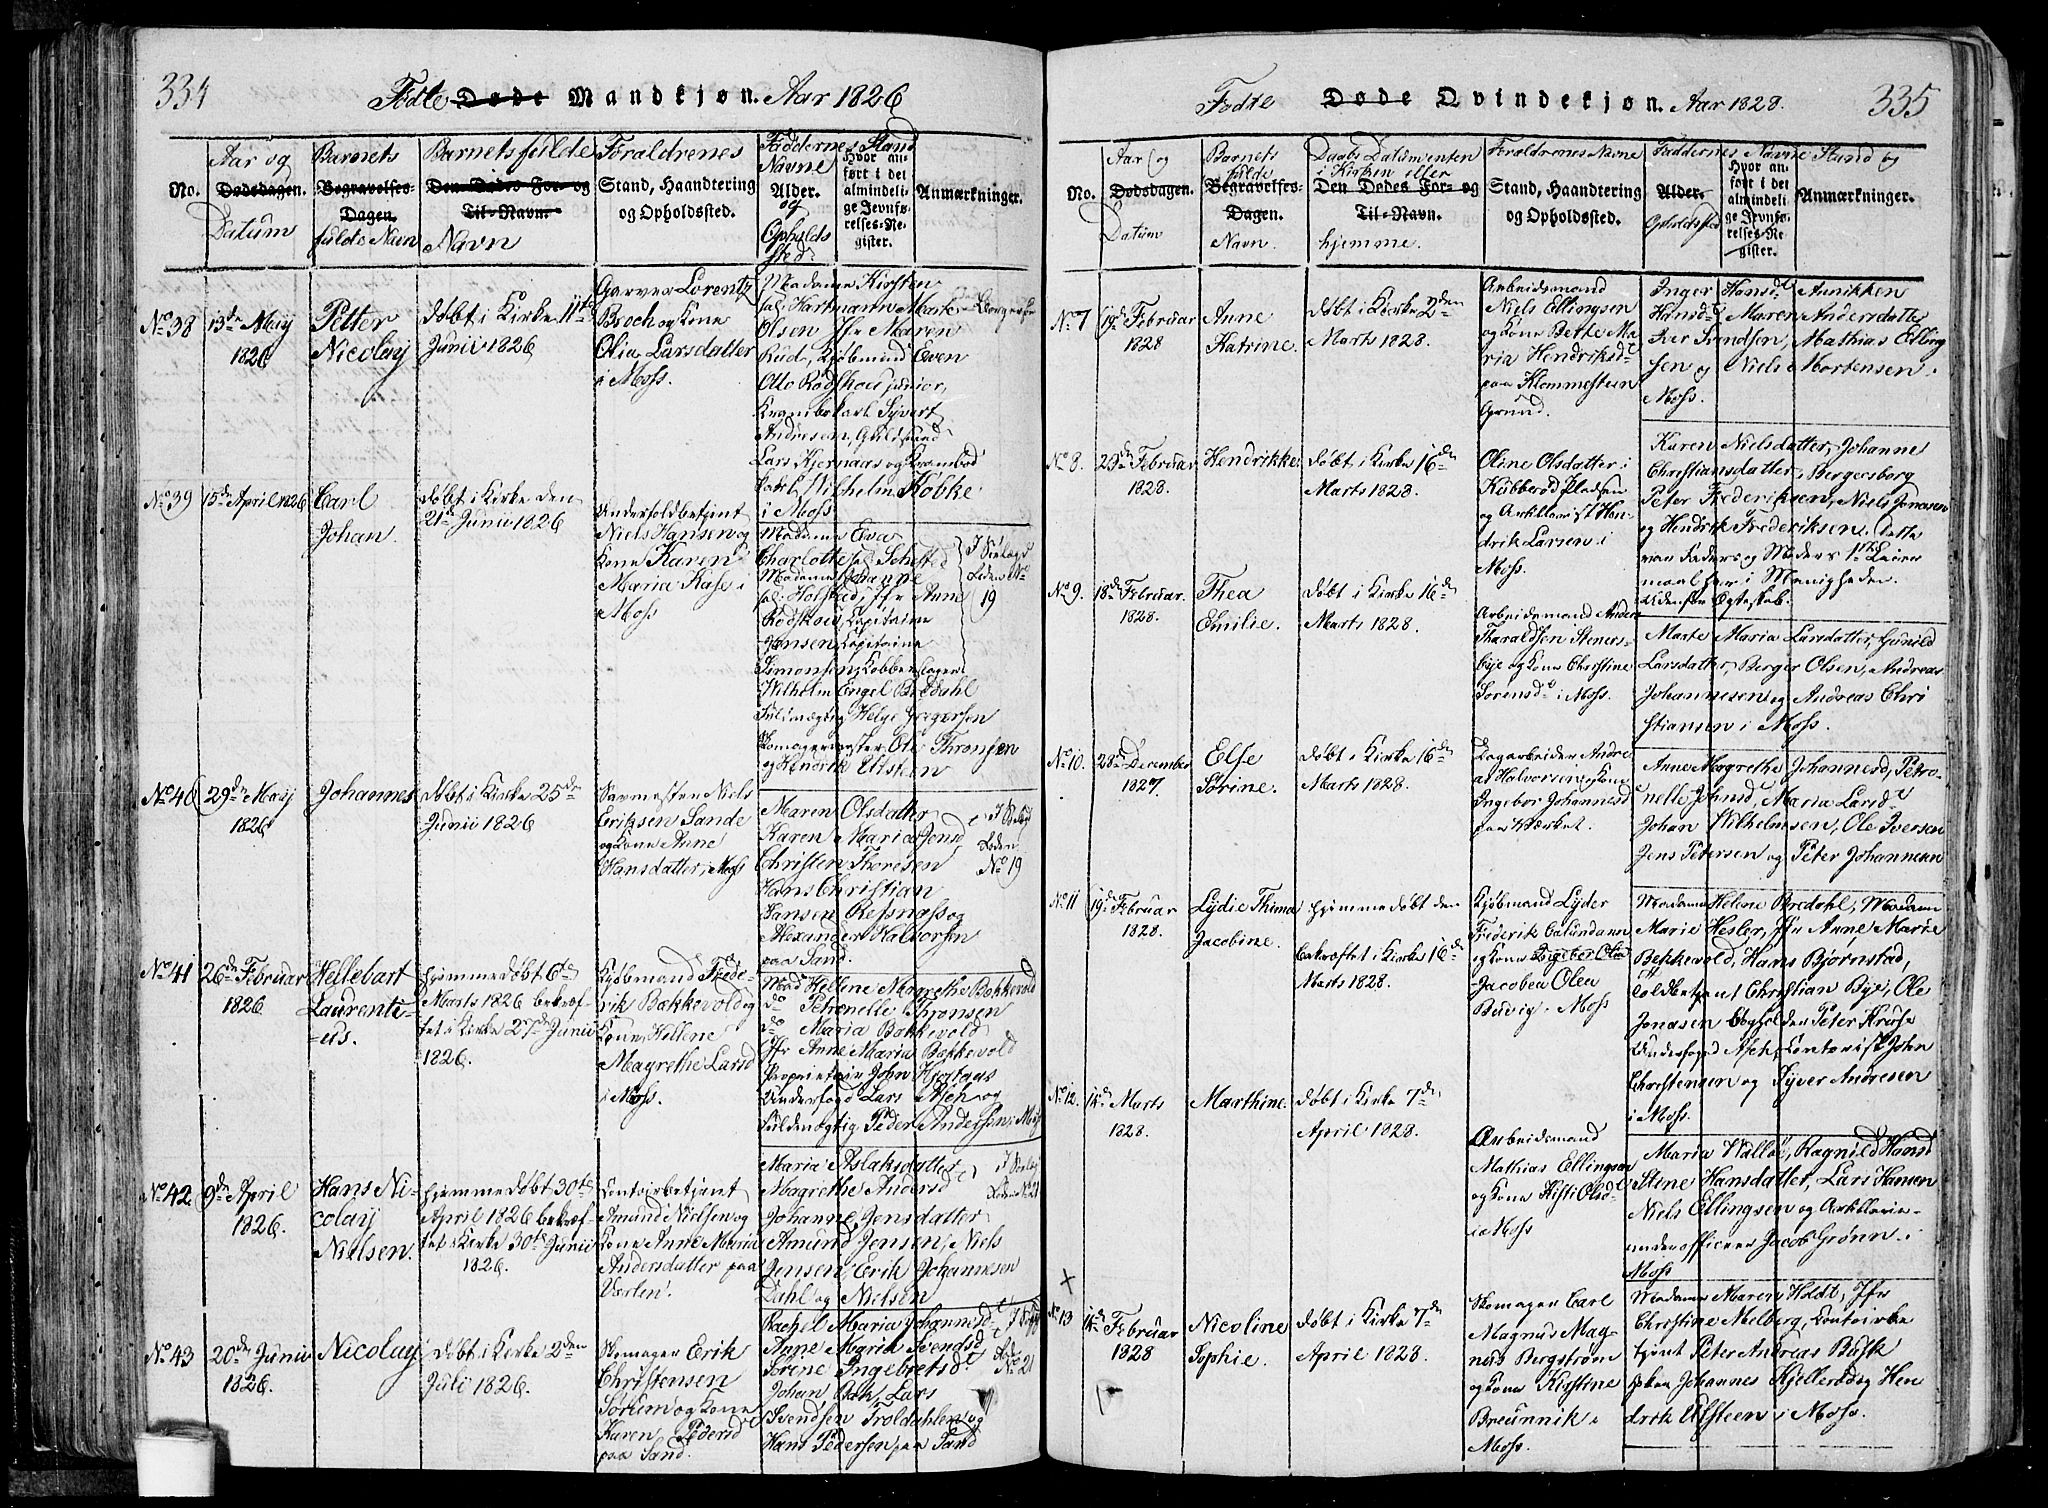 334
Fødte Døde Mandkjøn. Aar 1826
No.
Aar og
Dødsdagen.
Datum
Barnets
Begravelses-
Dagen.
fulde Navn
Barnets fulde
Den Dødes For- og
Til-Navn.
Navn
Forældrenes
Stand, Haandtering
og Opholdssted.
Faddernes Stand
Navne
Alder.
og
Opholds
sted
Hvor an-
ført i det
almindeli-
ge Jevnfø-
relses-Re-
gister.
Anmærkninger.
No 38
13de Maij
1826
Petter
Nicolay
døbt i Kirke 11te
Junii 1826
Garver Lorentz
Broch og Kone
Olia Larsdatter
i Moss.
Madame Kirsten
sal. Hartmann Marte
Olsen Jfr Maren
Rud, Kjøbmænd Even
Otto Rødshou junior,
Krambokarl Syvert
Andresen, Guldsmed
Lars Kjernaas og Krambod
karl Wilhelm Kobke
i Moss
No 39
15de April 1826
Carl
Johan.
døbt i Kirke den
21de Junii 1826
Undertoldbetjent
Niels Hansen og
Kone Karen
Maria Kass i
Moss
Madame Eva
Charlotte sal. Schested
Madame Johanne
sal. Holsted, Jfr Anne
Rødshou, Capitaine
Jensen, Capitaine
Simonsen, Kobberslager
Wilhelm Engel Bredahl
Fuldmægtig Helge Jørgersen
Skomagermester Ole Thronsen
og Hendrik Ulsteen
No 19
No 40
29de Maij
1826
Johannes
døbt i Kirke 25de
Junii 1826
Savmester Niels
Eriksen Sande
og Kone Anne
Hansdatter i Moss
Maren Olsdatter
Karen Maria Jensd
Christen Thoresen
Hans Christian
Hansen Refsnæss og
Alexander Halvorsen
paa Sand.
No 19
No 41
26de Februar
1826
Hellebart
Laurenti-
us.
hjemmedøbt 6te
Marts 1826 bekræf-
tet i Kirke 27de Junii
1826.
Kjøbmand Frede-
rik Bækkevold og
Kone Hellene
Magrethe Larsd
i Moss.
Mad Hellene Magrethe Bækkevold
do Petronelle Thronsen
do Maria Bækkevold
Jfr Anne Maria Bækkevold
Proprietair John Hjortaas
Underfogd Lars Asch og
Fuldmægtig Peder Andersen i Moss
No 42
9de April
1826.
Hans Ni-
colay
Nielsen.
hjemmedøbt 30te
April 1826 bekræf-
tet i Kirke 30te Junii
1826.
Contoirbetjent
Amund Nielsen og
Kone Anne Maria
Andersdatter paa
Værlen.
Maria Aslaksdatter
Magrethe Andersd
Johanne Jensdatter
Amund Jensen, Niels
Jensen, Erik Johannesen
Dahl og Nielsen
No 21
No 43
20de Junii
1826.
Nicolay
døbt i Kirke 2den
Julii 1826.
Skomager Erik
Christensen
Sørum og Kone
Karen Pedersd
paa Sand.
Rachel Maria Johannesd
Anne Marie Svendsd
Sørene Ingebretsd
Johan Bak, Lars
Svendsen Troldahlen og
Hans Pedersen paa Sand
No 21
335
Fødte Døde Qvindekjøn. Aar 1828.
No.
Aar og
Dødsdagen.
Datum
Barnets
fulde
Begravelses-
Dagen.
Navn.
Daabs Datum enten
i Kirken eller
Den Dødes For- og
Til-Navn.
hjemme.
Forældrenes Navne
Stand, Haandtering
og Opholdssted.
Faddernes Navne Stand og
Alder.
Opholdssted
Hvor an-
ført i det
almindeli-
ge Jevnfø-
relses-Re-
gister.
Anmærkninger.
No 7
19de Februar
1828
Anne
Katrine.
døbt i Kirke 2den
Marts 1828.
Arbeidsmand
Niels Ellingsen
og Kone Bette Ma
ria Hendriksd
paa Klommesteen
Grund.
Inger Hansd Annikken
Hansd Maren Andersdatter
Iver Svendsen, Mathias Elling
sen og Niels Mortensen i
Moss.
No 8.
29de Februar
1828.
Hendrikke
døbt i Kirke 16de
Marts 1828.
Oline Olsdatter i
Kubberød Pladsen
og Artillerist Hen-
drik Larsen i
Moss.
Karen Nielsdatter, Johanne
Christiansdatter, i Bergersborg
Peter Frederiksen, Niels Jonasen
og Hendrik Frederiksen. Dette
var Faders og Moders 1ste Leier
maal her i Menigheden.
Udenfor Ægteskab.
No 9.
18de Februar.
1828.
Thea
Emilie.
døbt i Kirke 16de
Marts 1828.
Arbeidsmand Anders
Tharaldsen Steners-
bye og Kone Christine
Sørensd i Moss.
Marte Maria Larsdatter, Gunild
Larsdatter, Berger Olsen, Andreas
Johannesen og Andreas Chri
stiansen i Moss.
No 10.
28de December
1827
Else
Sorine.
døbt i Kirke 16de
Marts 1828.
Dagarbeider Andre
as Halvorsen og Kone
Ingebor Johannesd
paa Værket.
Anne Magrethe Johannesd, Petro-
nelle Johnsd, Maria Larsd
Johan Wilhelmsen, Ole Iversen
Jens Petersen og Peter Johannesen
No 11
19de Februar
1828.
Lydie Thima
Jacobine.
hjemmedøbt den
bekræftet i Kirke 16de
Marts 1828.
Kjøbmand Lyder
Frederik Calundann
og Kone Ingeber Olia
Jacobea Olea
Buvig i Moss
Madame Helene Bredahl, Madam
Marie Hesler, Jfr Anne Marie
Bekkevold, Hans Bjørnstad,
Toldbetjent Christian Bye, Ole
Jonasen Peter Kruse
Underfoged Asch, Contorist John
Christensen og Syver Andresen
i Moss.
No 12.
1ste Marts
1828.
Marthine.
døbt i Kirke 7de
April 1828.
Arbeidsmand
Mathias Ellingsen
og Kone Kisti Olsd
i Moss
Maria Walløe, Ragnild Hansd
Stine Hansdatter, Lars Hansen
Niels Ellingsen og Artillerie-
underofficeer Jacob Grønn i
Moss
×
No 13
1ste Februar
1828
Nicoline
Sophie.
døbt i Kirke 7de
April 1828.
Skomager Carl
Magnus Mag-
nus Bergstrøm
og Kone Kirstine
Breunnik i
Moss.
Madame Maren Holdt, Jfr
Christine Melberg, Contoirbe
tjent Peter Andreas Busk
Johannes Kjellerød og Hen
drik Ulsteen i Moss.